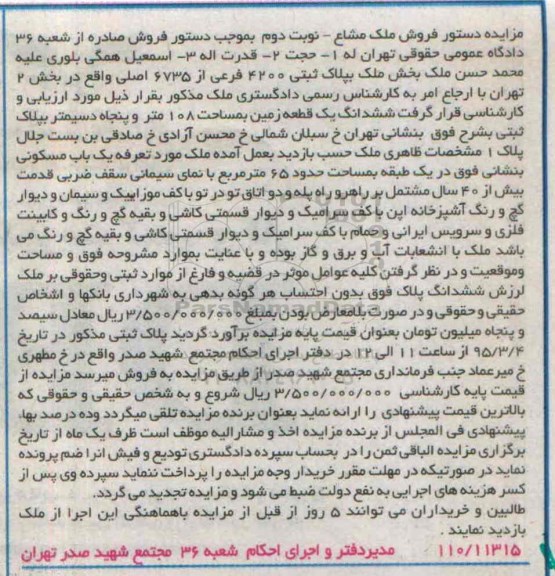 مزایده دستور فروش ملک مشاع - نوبت دوم بموجب دستور فروش صادره از شعبه ۳۶
دادگاه عمومی حقوقی تهران له ۱- حجت ۲- قدرت اله ۳- اسمعیل همگی بلوری علیه
محمد حسن ملک بخش ملک بپلاک ثبتی ۴۲۰۰ فرعی از ۶۷۳۵ اصلی واقع در بخش ۲
تهران با ارجاع امر به کارشناس رسمی دادگستری ملک مذکور بقرار ذیل مورد ارزیابی و
کارشناسی قرار گرفت ششدانگ یک قطعه زمین بمساحت ۱۰۸ متر و پنجاه دسیمتر بپلاک
ثبتی بشرح فوق بنشانی تهران خ سبلان شمالی خ محسن آزادی خ صادقی بن بست جلال
پلاک ۱ مشخصات ظاهری ملک حسب بازدید بعمل آمده ملک مورد تعرفه یک باب مسکونی
بنشانی فوق در یک طبقه بمساحت حدود ۶۵ مترمربع با نمای سیمانی سقف ضربی قدمت
بیش از ۴۰ سال مشتمل بر راهرو راه پله و دو اتاق تو در تو با کف موزاییک و سیمان و دیوار
گچ و رنگ آشپزخانه اپن با کف سرامیک و دیوار قسمتی کاشی و بقیه گچ و رنگ و کابینت
فلزی و سرویس ایرانی و حمام با کف سرامیک و دیوار قسمتی کاشی و بقیه گچ و رنگ می
باشد ملک با انشعابات آب و برق و گاز بوده و با عنایت بموارد مشروحه فوق و مساحت
وموقعیت و در نظر گرفتن کلیه عوامل موثر در قضیه و فارغ از موارد ثبتی وحقوقی بر ملک
لرزش ششدانگ پلاک فوق بدون احتساب هر گونه بدهی به شهرداری بانکها و اشخاص
حقیقی و حقوقی و در صورت بلامعارض بودن بمبلغ ۳/۵۰۰/۰۰۰/۰۰۰ ریال معادل سیصد
و پنجاه میلیون تومان بعنوان قیمت پایه مزایده برآورد گردید پلاک ثبتی مذکور در تاریخ
۹۵/۳/۴ از ساعت ۱۱ الی ۱۲ در دفتر اجرای احکام مجتمع شهید صدر واقع در خ مطهری
خ میرعماد جنب فرمانداری مجتمع شهید صدر از طریق مزایده به فروش میرسد مزایده از
قیمت پایه کارشناسی ۳/۵۰۰/۰۰۰/۰۰۰ ریال شروع و به شخص حقیقی و حقوقی که
بالاترین قیمت پیشنهادی را ارائه نماید بعنوان برنده مزایده تلقی میگردد وده درصد بها،
پیشنهادی فی المجلس از برنده مزایده اخذ و مشارالیه موظف است ظرف یک ماه از تاریخ
برگزاری مزایده الباقی ثمن را در بحساب سپرده دادگستری تودیع و فیش انرا ضم پرونده
نماید در صورتیکه در مهلت مقرر خریدار وجه مزایده را پرداخت ننماید سپرده وی پس از
کسر هزینه های اجرایی به نفع دولت ضبط می شود و مزایده تجدید می گردد.
طالبین و خریداران می توانند ۵ روز از قبل از مزایده باهماهنگی این اجرا از ملک
بازدید نمایند .
۱۱۰/۱۱۳۱۵ مدیردفتر و اجرای احکام شعبه ۳۶ مجتمع شهید صدر تهران